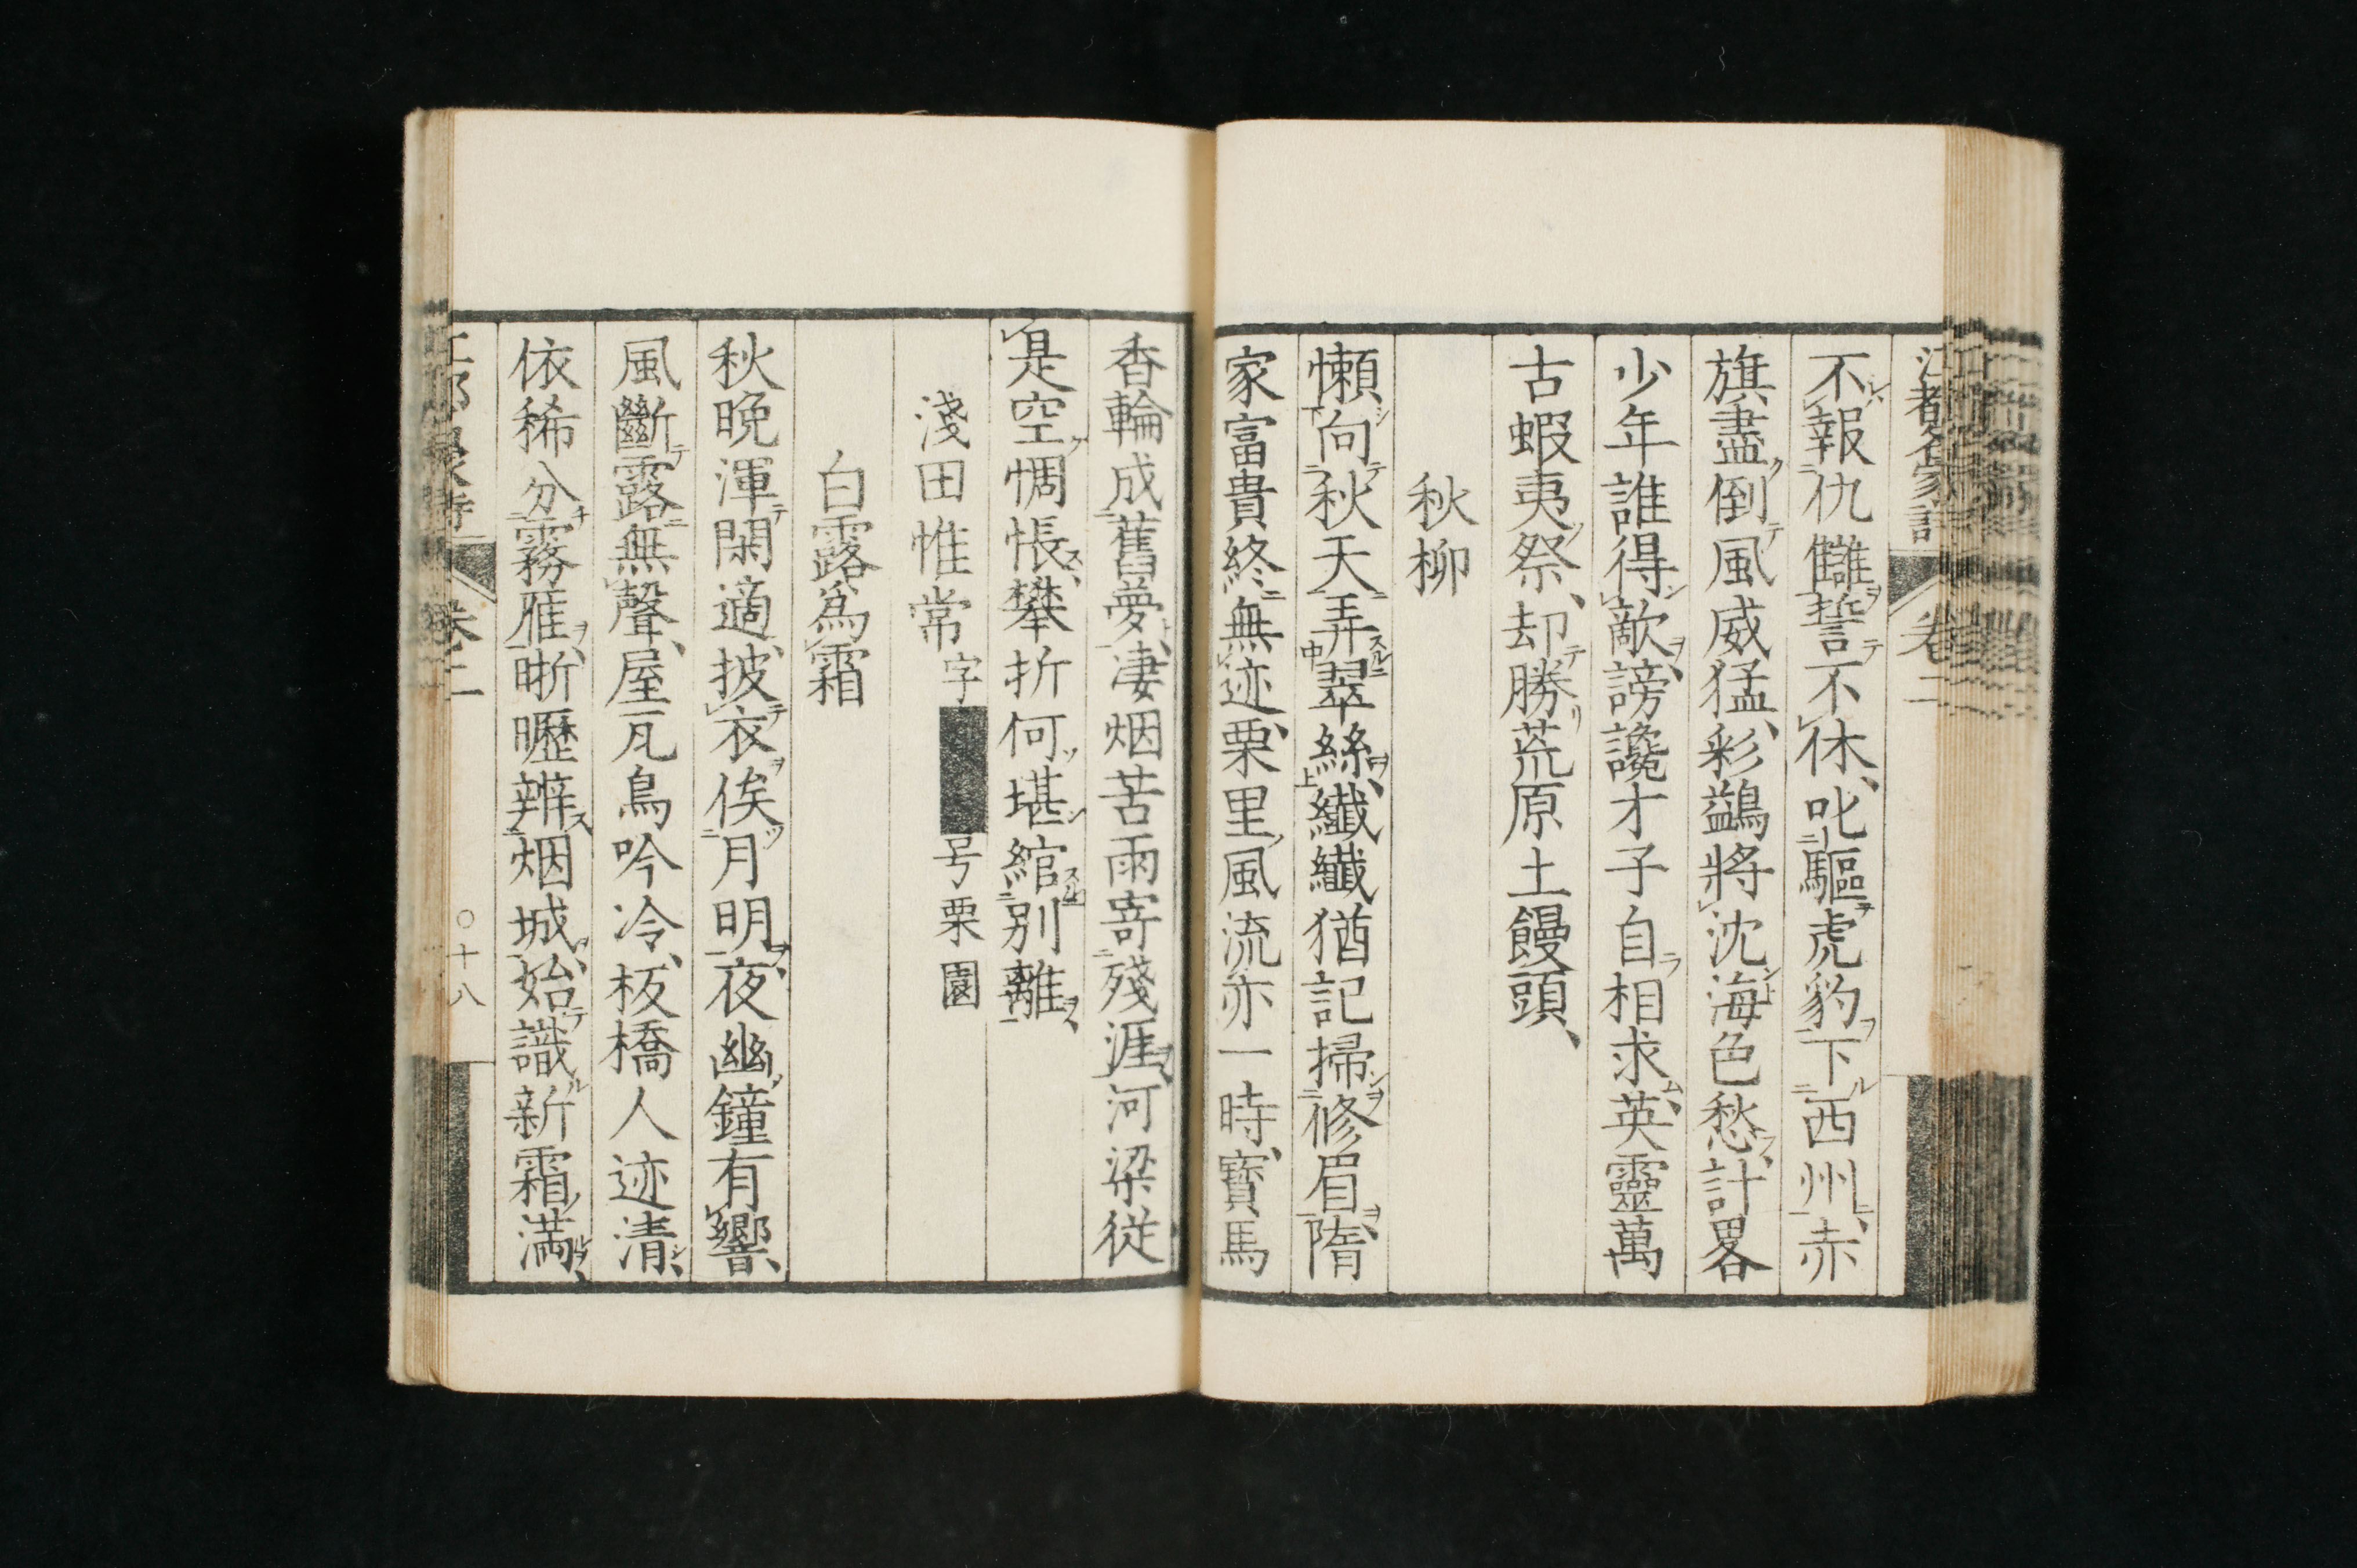 江都名家詩 卷二
不報仇讎誓不休、叱驅虎豹下西州、赤
旗盡倒風威猛、彩鷁將沈海色愁、計畧
少年誰得敵、謗讒才子自相求、英靈萬
古蝦夷祭、却勝荒原土饅頭、
秋柳
懶向秋天弄翠絲、纖纖猶記掃修眉、隋
家富貴終無迹、栗里風流亦一時、寳馬
香輪成舊夢、凄烟苦雨寄殘涯、河梁従
是空惆悵、攀折何堪綰别離、
淺田惟常 字 号栗園
白露為霜
秋晚渾閑適、披衣俟月明、夜幽鐘有響、
風斷露無聲、屋瓦鳥吟冷、板橋人迹清、
依稀分霧雁、晰曬辨烟城、始識新霜満、
卷二
〇十八